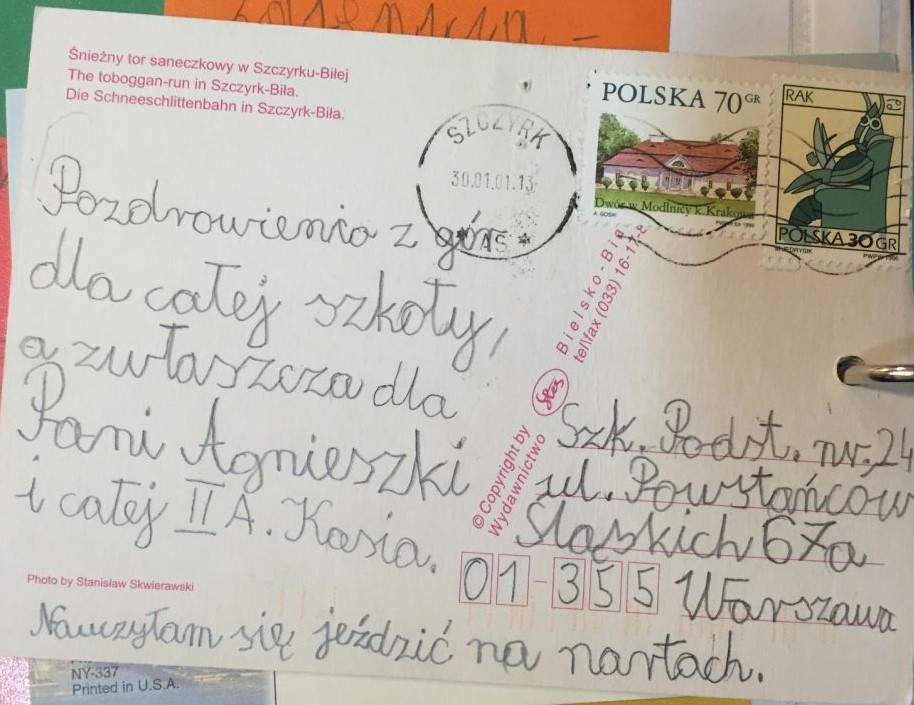 Śnieżny tor saneczkowy w Szczyrku-Biłej
The toboggan-run in Szczyrk-Biła.
Die Schneeschlittenbahn in Szczyrk-Biła.
SZCZYRK
30.01.01.13
POLSKA 70 GR
Dwór w Modlnicy k. Krakowa
RAK
POLSKA 30 GR
PWPW 1996
Pozdrowienia z gór
dla całej szkoły,
a zwłaszcza dla
Pani Agnieszki
i całej II A. Kasia.
Nauczyłam się jeździć na nartach.
©Copyright by
Wydawnictwo
Bielsko-Bia
tel\fax (033) 16-17-
Szk. Podst. nr. 24
ul. Powstańców
Śląskich 67a
01-355 Warszawa
Photo by Stanisław Skwierawski
NY-337
Printed in U.S.A.